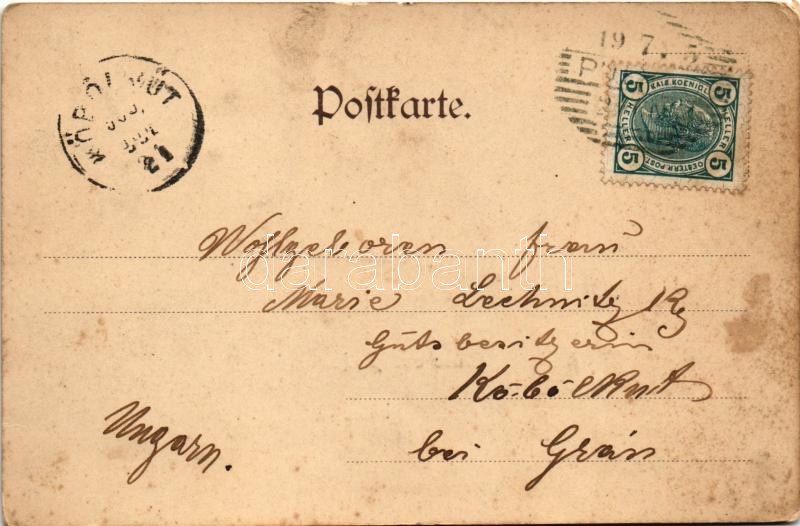 19 7.
KÖBÖLKÚT
21
Postkarte.
5 KAIS. KOENIGL. 5
HELLER HELLER
5 OESTERR. POST. 5
Wohlgeboren frau
Marie Lechnitzky
Gutsbesitzerin
Köbölkut
bei Grán
Ungarn.
darabanth